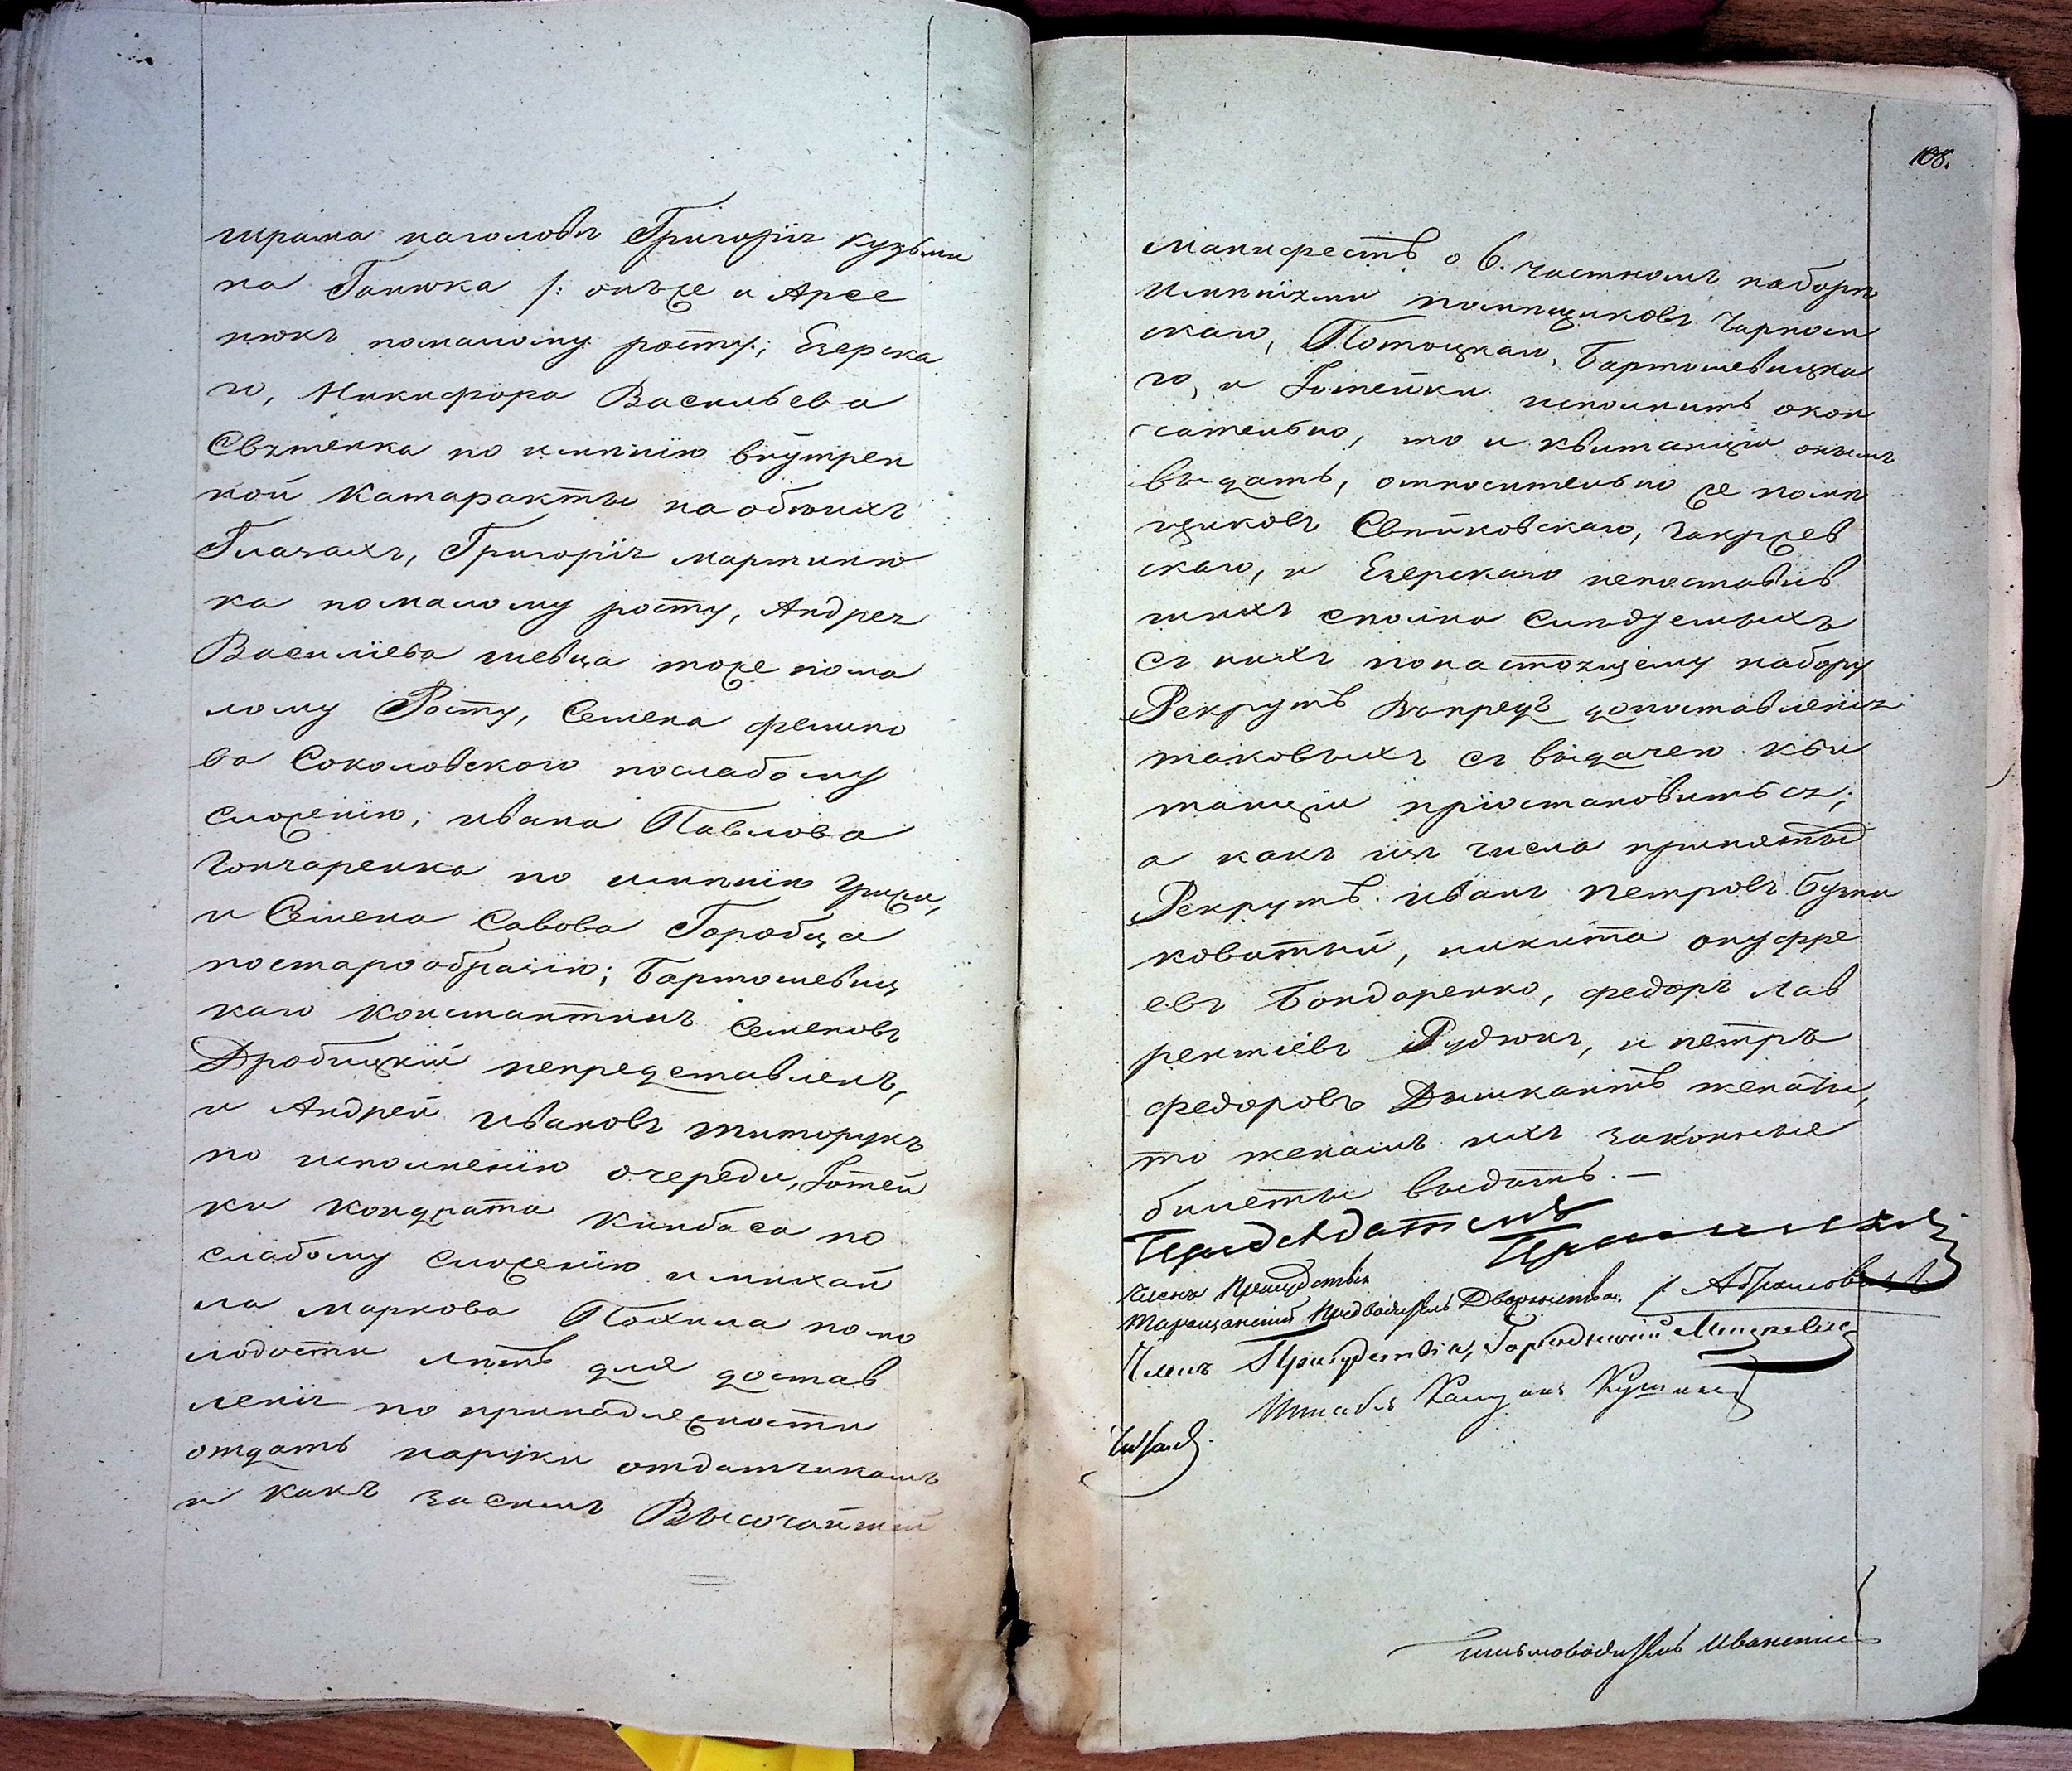 шрама наголовѣ Григорія Кузьми
на Ганюка /: онъ же и Арсе
нюкъ помалому росту; Езерска
го, Никифора Васильева
Святенка по имѣнію внутрен
ной Катаракты на обоихъ
Глазахъ, Григорія мартыню
ка помалому росту, Андрея
Василіева шевца тоже пома
лому Росту, Семена филипо
ва Соколовского послабому
сложенію, ивана Павлова
Гончаренка по имѣнію грижи,
и Семена Савова Горобца
постарообразію; Бартошевиц
каго константинъ Семеновъ
Дробицкій непредставленъ,
и Андрей ивановъ титорукъ
по исполненію очереди, Готей
ки кондрата Кинбаса по
слабому сложенію и михай
ла маркова Похила помо
лодости лѣтъ для достав
ленія по принадлежности
отдать наруки отдатчикамъ
и какъ засимъ Высочайшій
108.
манифестъ о 6. частномъ наборѣ
имѣніями помѣщиковъ Чарном
скаго, Потоцкаго, Бартошевицка
го, и Готейки исполнитъ окон
чательно, то и квитанціи онымъ
выдать, относительно же помѣ
щиковъ Свѣйковскаго, Закржев
скаго, и Езерскаго непоставив
шихъ сполна Слѣдуемыхъ
съ нихъ понастоящему набору
Рекрутъ впредъ допоставленія
таковыхъ съ выдачею кви
танціи пріостановиться;
а какъ изъ числа принятыхъ
Рекрутъ иванъ петровъ
коватый, никита онуфре
евъ Бондаренко, федоръ Лав
рентіевъ Рудюкъ, и петръ
федоровъ Дышкантъ женаты,
то женамъ ихъ законные
билеты выдать. —
Предсѣдатель
Членъ Присудствія
Таращанскій Предводитель Дворянства
Членъ Присудствія, Городничій
Штабъ
письмоводитель